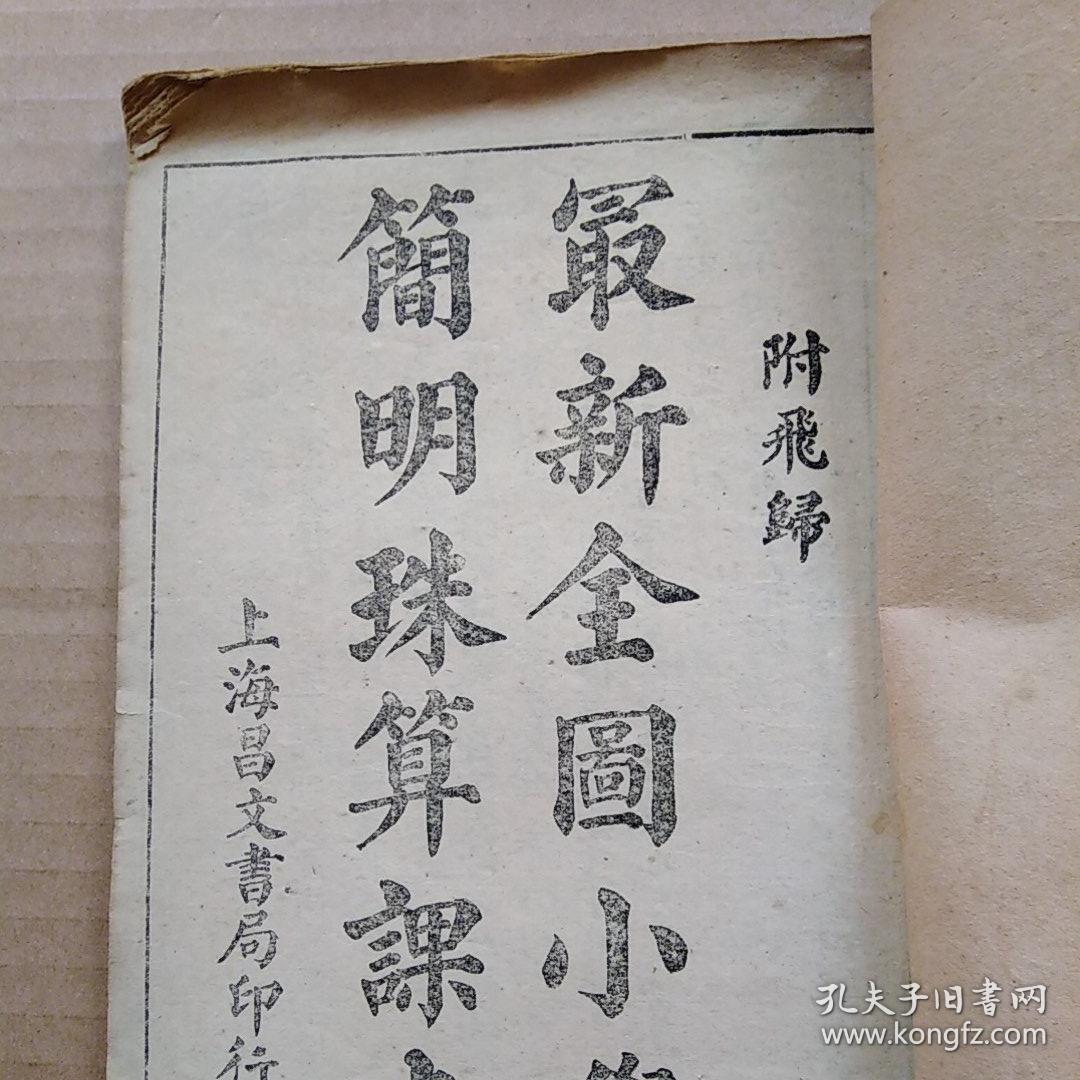 附飛歸
最新全圖小
簡明珠算課
上海昌文書局印行
孔夫子旧書网
www.kongfz.com